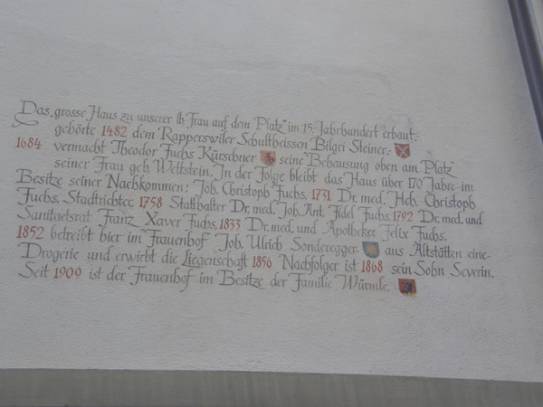 Das „grosse Haus zu unserer lb Frau auf dem Platz" im 15. Jahrhundert erbaut:
gehörte 1482 dem Rapperswiler Schultheissen Bilgri Steiner.
1684 vermacht Theodor Fuchs Kürschner seine Behausung oben am Platz
seiner Frau geb. Wettstein. In der Folge bleibt das Haus über 170 Jahre im
Besitze seiner Nachkommen: Joh. Christoph Fuchs, 1731 Dr. med. Hch. Christoph
Fuchs, Stadtrichter, 1758 Statthalter Dr. med. Joh. Ant. Fidel Fuchs, 1792 Dr. med. und
Sanitaetsrat Franz Xaver Fuchs, 1833 Dr. med. und Apotheker Felix Fuchs.
1852 betreibt hier im Frauenhof Joh. Ulrich Sonderegger aus Altstätten eine
Drogerie und erwirbt die Liegenschaft 1856 Nachfolger ist 1868 sein Sohn Severin.
Seit 1909 ist der Frauenhof im Besitze der Familie Würmle.